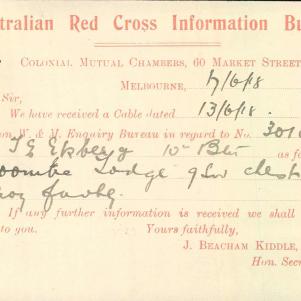 tralian Red Cross Information Bu
Colonial Mutual Chambers, 60 Market Street
Melbourne, 17/6/18
Sir,
We have received a Cable dated 13/6/18
on W. & M. Enquiry Bureau in regard to No. 301
T E Ekberg 10 Btn as fo
oombe Lodge G S W chest
If any further information is received we shall
to you. Yours faithfully,
J. Beacham Kiddle,
Hon. Secr